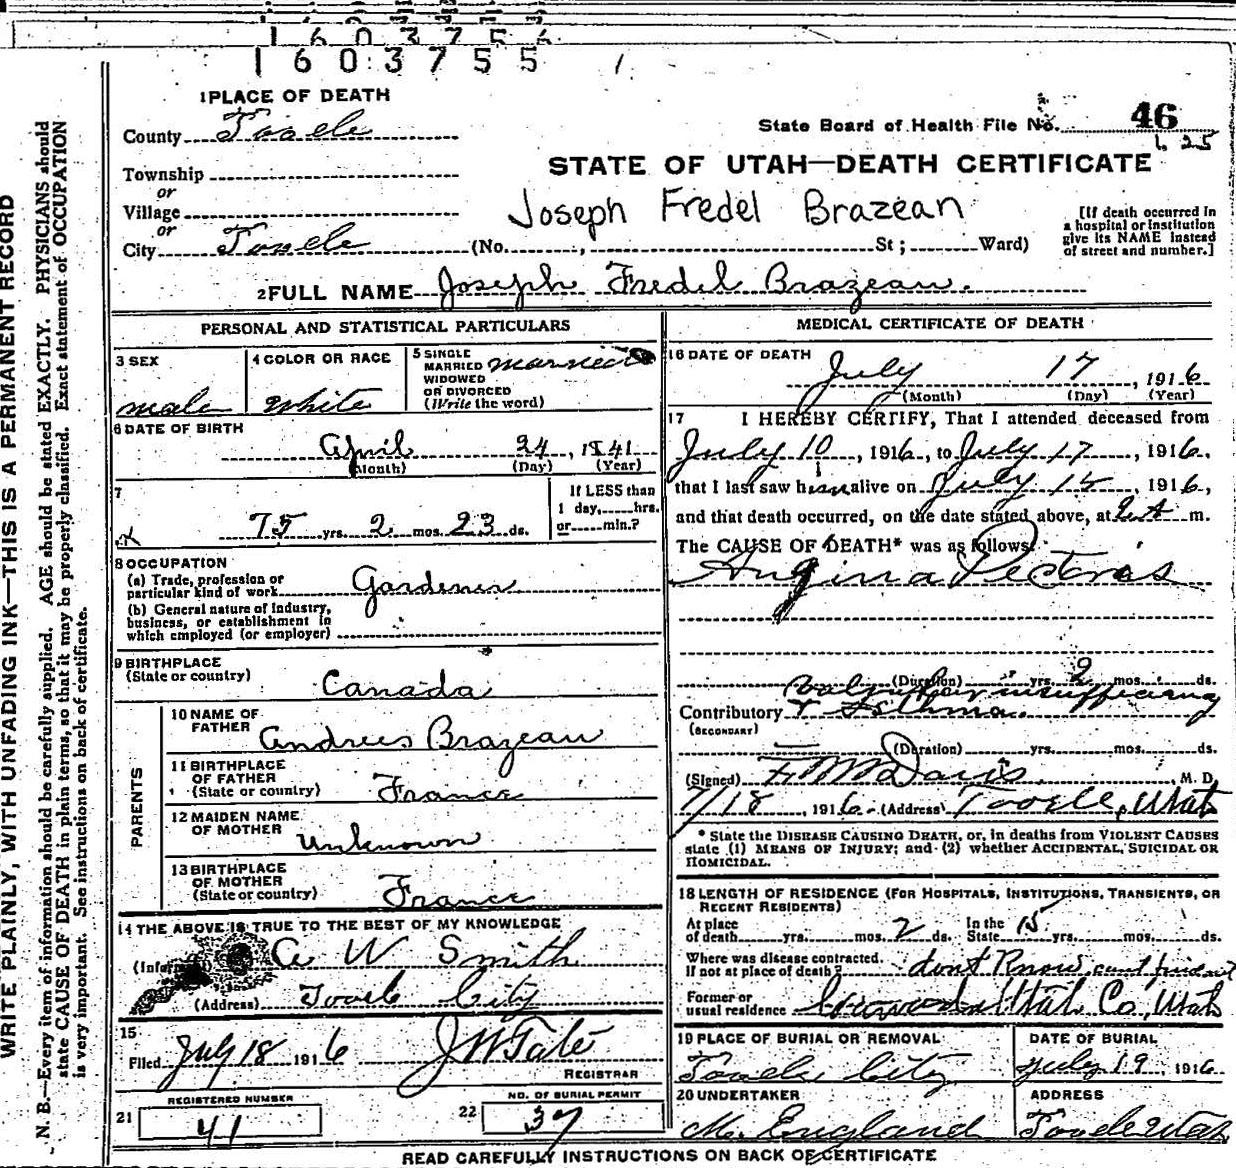 1603755
1603755
1 PLACE OF DEATH
County Tooele
State Board of Health File No. 46
Township
or
STATE OF UTAH—DEATH CERTIFICATE
Village
or
Joseph Fredel Brazean
City Tooele (No. , St ; Ward)
[If death occurred in a hospital or institution give its NAME instead of street and number.]
2 FULL NAME Joseph Fredel Brazeau.
PERSONAL AND STATISTICAL PARTICULARS
3 SEX male
4 COLOR OR RACE white
5 SINGLE MARRIED WIDOWED OR DIVORCED (Write the word) married
6 DATE OF BIRTH
April 24, 1841
(Month) (Day) (Year)
7
75 yrs. 2 mos. 23 ds.
If LESS than 1 day, hrs. or min.?
8 OCCUPATION
(a) Trade, profession or particular kind of work Gardener
(b) General nature of Industry, business, or establishment in which employed (or employer)
9 BIRTHPLACE
(State or country) Canada
PARENTS
10 NAME OF FATHER Andrees Brazeau
11 BIRTHPLACE OF FATHER (State or country) France
12 MAIDEN NAME OF MOTHER Unknown
13 BIRTHPLACE OF MOTHER (State or country) France
14 THE ABOVE IS TRUE TO THE BEST OF MY KNOWLEDGE
(Informant) W Smith
(Address) Tooele City
15
Filed July 18 1916 J W Tate
REGISTRAR
21 REGISTERED NUMBER 41
22 NO. OF BURIAL PERMIT 37
MEDICAL CERTIFICATE OF DEATH
16 DATE OF DEATH
July 17, 1916
(Month) (Day) (Year)
17 I HEREBY CERTIFY, That I attended deceased from
July 10, 1916, to July 17, 1916,
that I last saw him alive on July, 1916,
and that death occurred, on the date stated above, at m.
The CAUSE OF DEATH* was as follows:
Angina Pectoris
(Duration) yrs. 2 mos. ds.
Contributory (SECONDARY) insufficiency
+ Asthma.
(Duration) yrs. mos. ds.
(Signed) Davis, M. D.
7/18, 1916 (Address) Tooele, Utah
* State the DISEASE CAUSING DEATH, or, in deaths from VIOLENT CAUSES
state (1) MEANS OF INJURY; and (2) whether ACCIDENTAL, SUICIDAL OR
HOMICIDAL.
18 LENGTH OF RESIDENCE (FOR HOSPITALS, INSTITUTIONS, TRANSIENTS, OR
RECENT RESIDENTS)
At place of death yrs. mos. 2 ds. In the State 15 yrs. mos. ds.
Where was disease contracted, If not at place of death? dont Know
Former or usual residence Utah Co, Utah
19 PLACE OF BURIAL OR REMOVAL
Tooele City
DATE OF BURIAL
July 19, 1916
20 UNDERTAKER
M. England
ADDRESS
Tooele Utah
READ CAREFULLY INSTRUCTIONS ON BACK OF CERTIFICATE
WRITE PLAINLY, WITH UNFADING INK—THIS IS A PERMANENT RECORD
N. B.—Every item of information should be carefully supplied. AGE should be stated EXACTLY. PHYSICIANS should
state CAUSE OF DEATH in plain terms, so that it may be properly classified. Exact statement of OCCUPATION
is very important. See instructions on back of certificate.